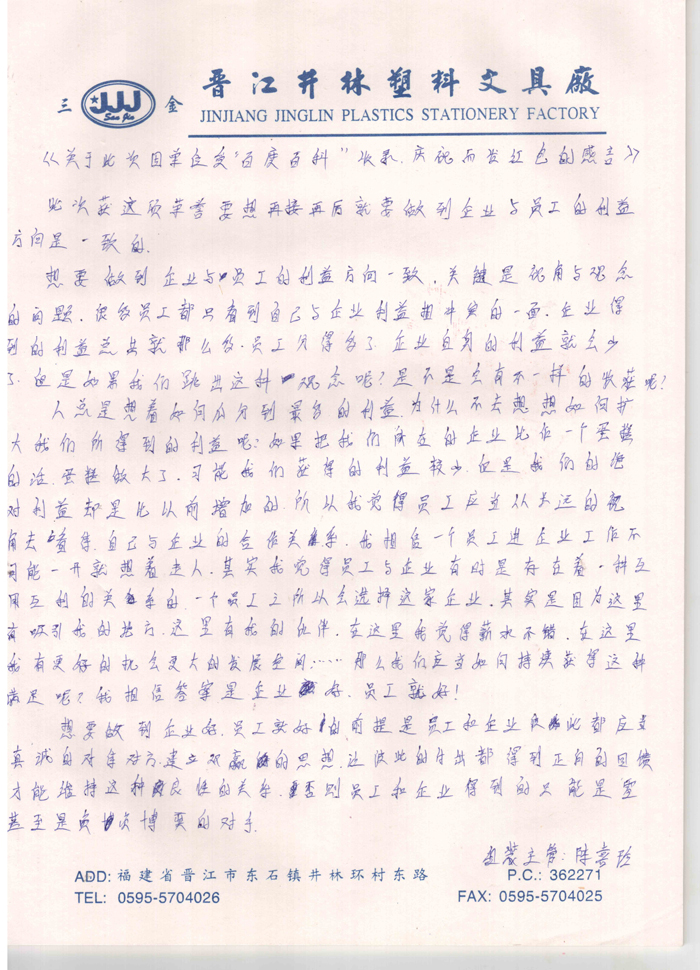 三 JJJ San Jin 金
晋江井林塑料文具廠
JINJIANG JINGLIN PLASTICS STATIONERY FACTORY
《关于此次因荣登家"百度百科"收录.庆祝而发红包的感言》
此次获这项荣誉要想再接再厉就要做到企业与员工的利益
方向是一致的.
想要做到企业与员工的利益方向一致.关键是视角与观念
的问题.很多员工都只看到自己与企业利益相冲突的一面.企业得
到的利益总共就那么多.员工分得多了企业自身的利益就会少
了.但是如果我们跳出这种观念呢?是不是会有不一样的收获呢?
人总是想着如何瓜分到最多的利益.为什么不去想想如何扩
大我们所得到的利益呢?如果把我们所在的企业比作一个蛋糕
的话.蛋糕做大了.可能我们获得的利益较少.但是我们的绝
对利益却是比以前增加的.所以我觉得员工应当从长远的视
角去看待自己与企业的合作关系.我相信一个员工进企业工作不
可能一开就想着走人.其实我觉得员工与企业有时是存在着一种互
用互利的关系的.一个员工之所以会选择这家企业.其实是因为这里
有吸引我的地方.这里有我的伙伴.在这里我觉得薪水不错.在这里
我有更好的机会更大的发展空间……那么我们应当如何持续获得这种
满足呢?我相信答案是企业好.员工就好!
想要做到企业好.员工就好的前提是员工和企业彼此都应当
真诚的对待对方.建立双赢的思想.让彼此的付出都得到正向的回馈
才能维持这种良性的关系.否则员工和企业得到的只能是零
甚至是负次博弈的对手.
组装主管:陈喜玲
ADD:福建省晋江市东石镇井林环村东路 P.C.: 362271
TEL: 0595-5704026 FAX: 0595-5704025